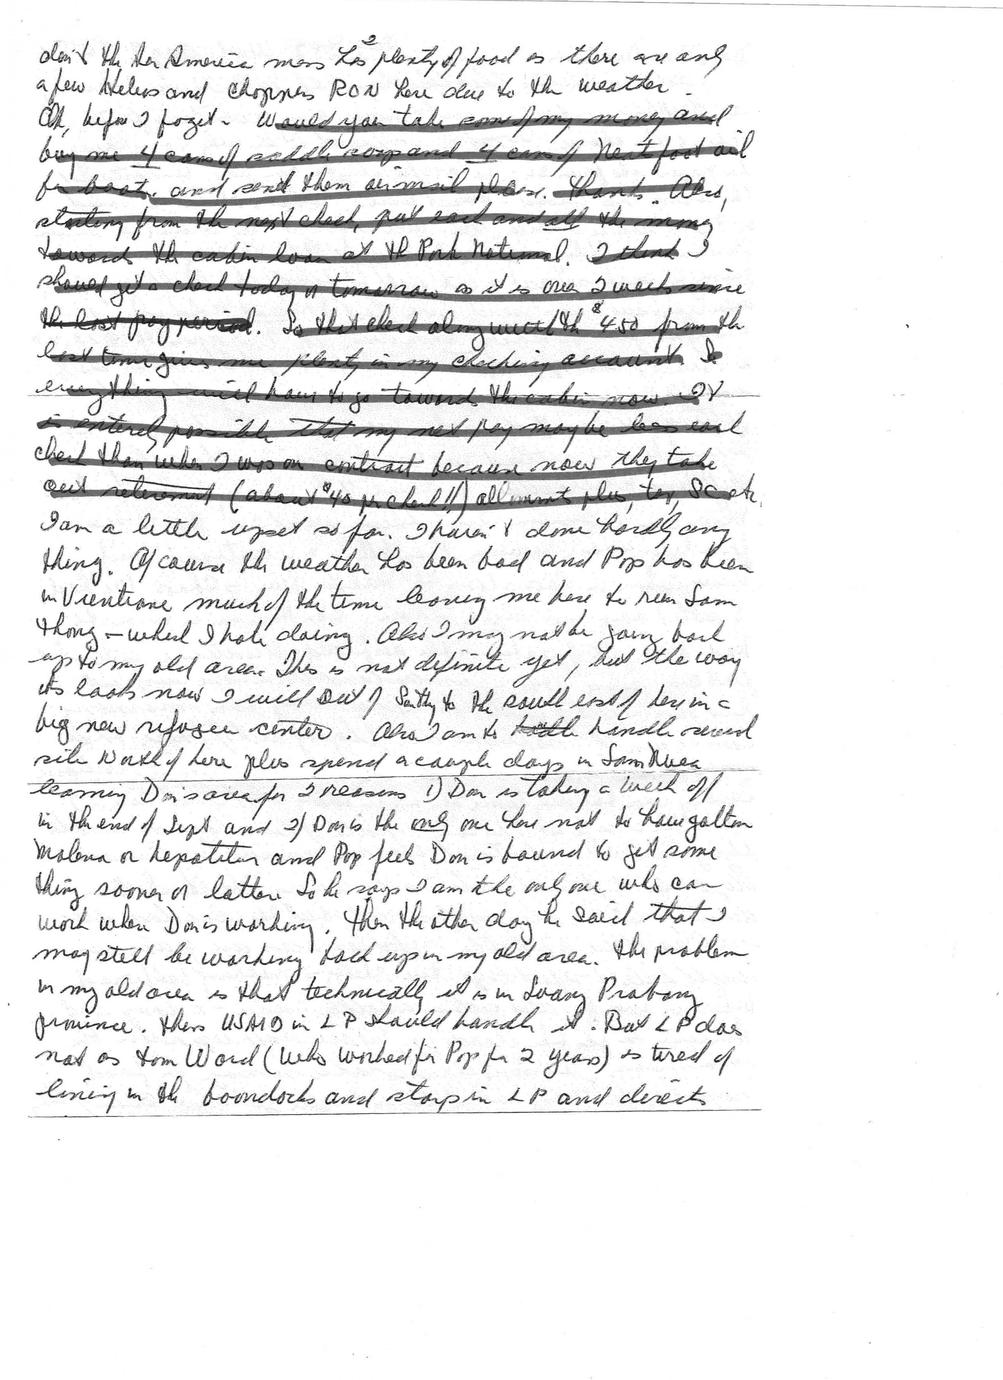 2
don't the Air America mess has plenty of food as there are only
a few Helios and choppers RON here due to the weather.
Oh, before I forget - Would you take some of my money and
buy me 4 cans of saddle soap and 4 cans of Neatfoot oil
for boots, and send them airmail please. Thanks. Also,
starting from the next check, put each and all the money
towards the cabin loan at the Park National. I think I
should get a check today or tomorrow as it is over 2 weeks since
the last pay period. So that check along with the $450 from the
last time gives me plenty in my checking account. So
everything will have to go towards the cabin now. It
is entirely possible that my net pay maybe less each
check than when I was on contract because now they take
out retirement (about $40 per check!!) allotments plus, tax, SC etc.
I am a little upset so far. I haven't done hardly any
thing. Of course the weather has been bad and Pop has been
in Vientiane much of the time leaving me here to run Sam
Thong - which I hate doing. Also I may not be going back
up to my old area. This is not definite yet, but the way
its looks now I will out of to the south east of here in a
big new refugee center. Also I am to handle several
site North of here plus spend a couple days in Sam Neua
learning Don's area for 2 reasons 1) Don is taking a week off
in the end of Sept and 2) Don is the only one here not to have gotten
Malaria or hepatitis and Pop feels Don is bound to get some
thing sooner or latter. So he says I am the only one who can
work when Don is working. Then the other day he said that I
may still be working back up in my old area. The problem
in my old area is that technically it is in Luang Prabang
province. Thus USAID in LP should handle it. But LP does
not as Tom Ward (who worked for Pop for 2 years) is tired of
living in the boondocks and stays in LP and directs